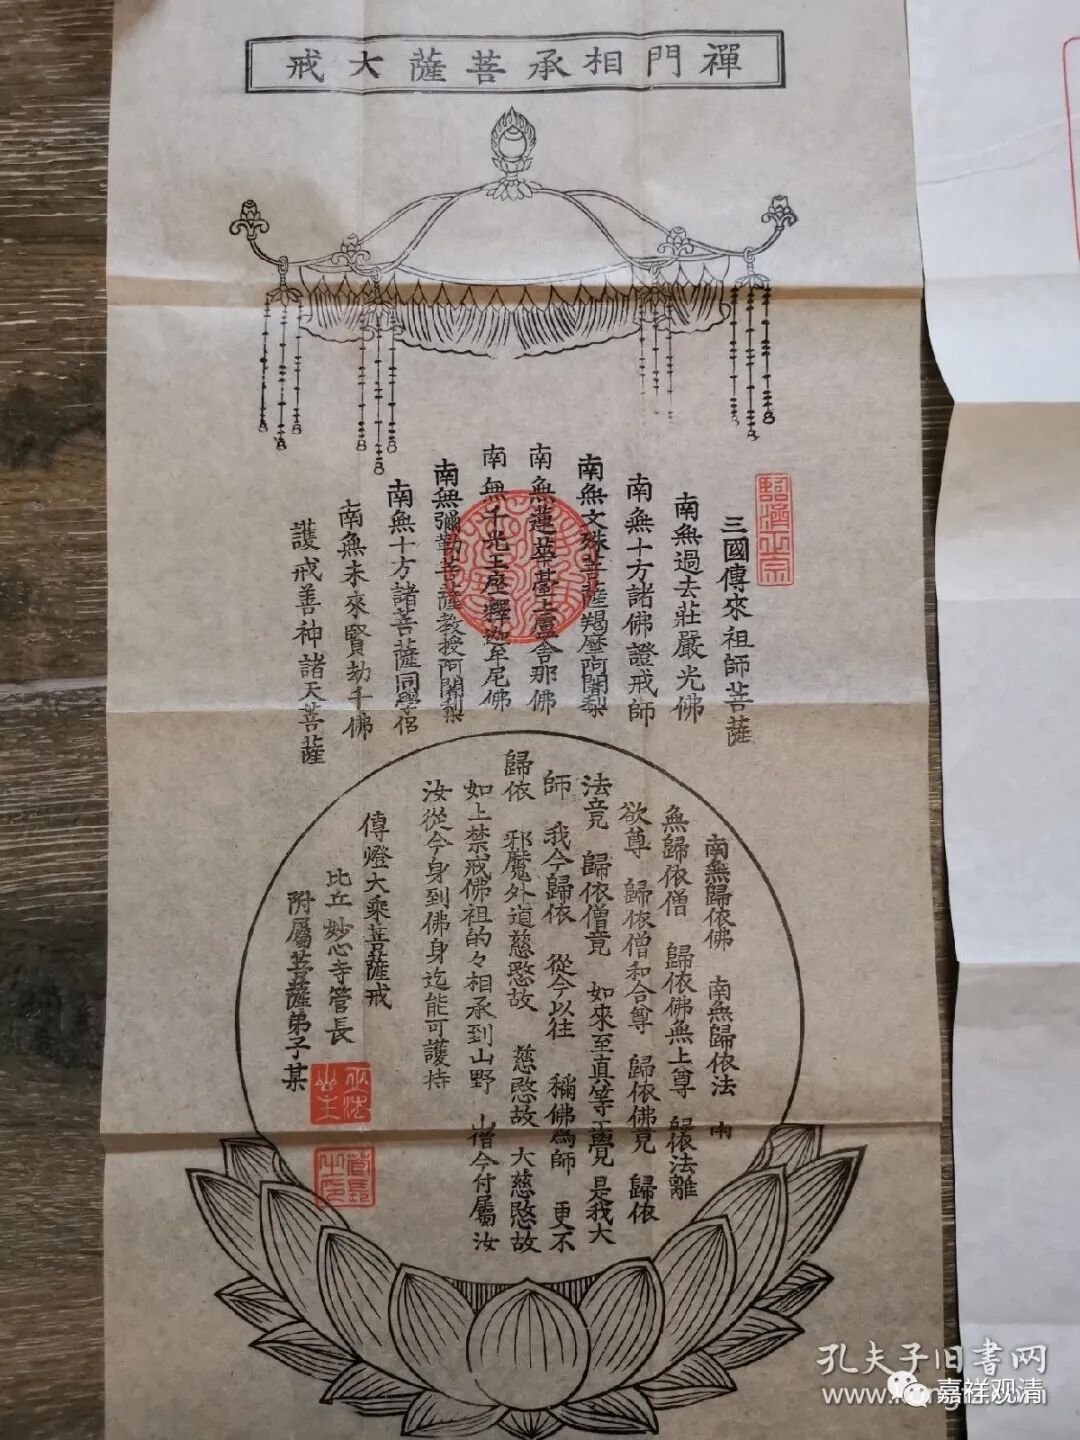 禪門相承菩薩大戒
臨濟正宗
三國傳來祖師菩薩
南無過去莊嚴光佛
南無十方諸佛證戒師
南無文殊菩薩羯磨阿闍梨
南無蓮華臺上盧舍那佛
南無千光王座釋迦牟尼佛
南無彌勒菩薩教授阿闍梨
南無十方諸菩薩同學侶
南無未來賢劫千佛
護戒善神諸天菩薩
南無歸依佛 南無歸依法 南
無歸依僧 歸依佛無上尊 歸依法離
欲尊 歸依僧和合尊 歸依佛竟 歸依
法竟 歸依僧竟 如來至真等正覺 是我大
師 我今歸依 從今以往 稱佛為師 更不
歸依 邪魔外道慈愍故 慈愍故 大慈愍故
如上禁戒佛祖的々相承到山野 山僧今付屬汝
汝從今身到佛身迄能可護持
傳燈大乘菩薩戒
比丘 妙心寺管長
附屬菩薩弟子某
管長之印
孔夫子旧书网
嘉祥观清